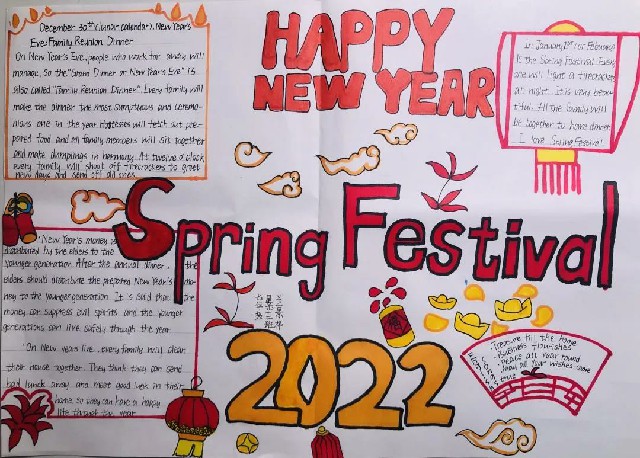 December 30th (lunar calendar). New Year's
Eve: Family Reunion Dinner
On New Year's Eve, people who work far away will
manage, So the "Grand Dinner on New Year's Eve" is
also called "Family Reunion Dinner". Every family will
make the dinner the most sumptuous and ceremo-
nious one in the year. Hostesses will fetch out pre-
pared food and all family members will sit together
and make dumplings in harmony. At twelve o'clock
every family will shoot off firecrackers to greet
new days and send off old ones.
HAPPY
NEW YEAR
January 1st
is the Spring Festival.
one will
at night. It is very
All the family will
be together to have dinner
I love Spring Festival
Spring Festival
New Year's money is
distributed by the elders to the
younger generation. After the annual dinner, the
elders should distribute the prepared New Year's mo-
ney to the younger generation. It is said that the
money can suppress evil spirits and the younger
generations can live safely through the year.
On New years Eve, every family will clean
their house together. They think they can send
bad luck away and more good luck in their
home, so they can have a happy
life through the year.
2022
Treasure fill the home
Business flourishes
Peace all year round
your wishes come
true